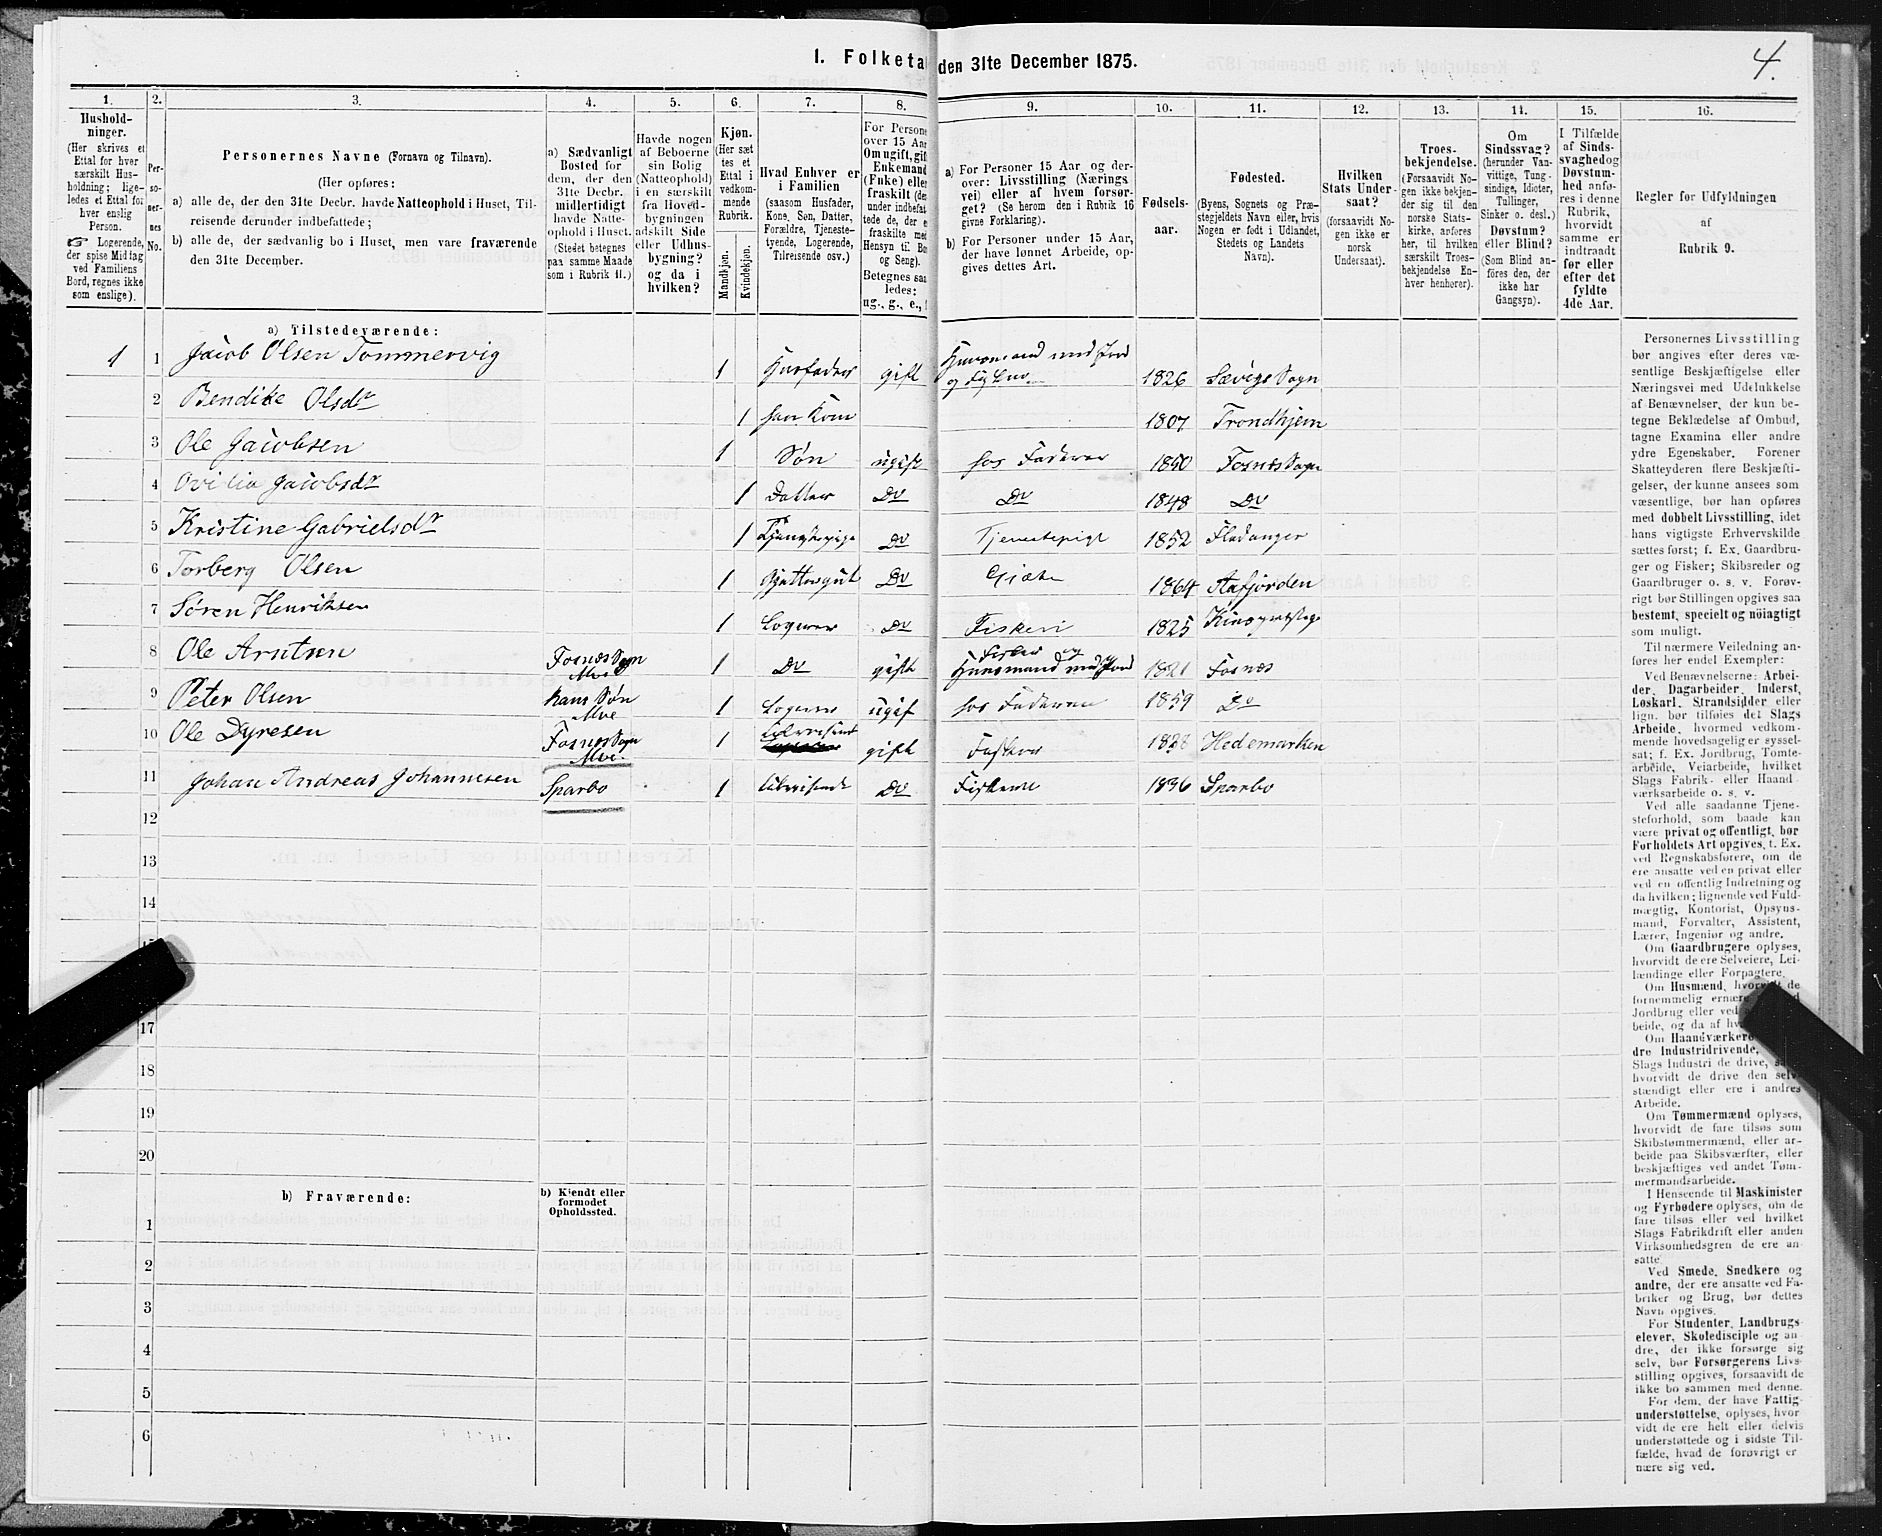 4.
1. Folketal den 31te December 1875.
1.
2.
3.
4.
5.
6.
7.
8.
9.
10.
11.
12.
13.
14.
15.
16.
Hushold-
ninger.
(Her skrives et
Ettal for hver
særskilt Hus-
holdning; lige-
ledes et Ettal for
hver enslig
Person.
☞ Logerende,
der spise Middag
ved Familiens
Bord, regnes ikke
som enslige).
Per-
so-
ner-
nes
No.
Personernes Navne (Fornavn og Tilnavn).
(Her opføres:
a) alle de, der den 31te Decbr. havde Natteophold i Huset, Til-
reisende derunder indbefattede;
b) alle de, der sædvanlig bo i Huset, men vare fraværende
den 31te December.
a) Sædvanligt
Bosted for
dem, der den
31te Decbr.
midlertidigt
havde Natte-
ophold i Huset.
(Stedet betegnes
paa samme Maade
som i Rubrik 11.)
Havde nogen
af Beboerne
sin Bolig
(Natteophold)
i en særskilt
fra Hoved-
bygningen
adskilt Side
eller Udhus-
bygning?
og da i
hvilken?
Kjøn.
(Her sæt
tes et
Ettal i
vedkom-
mende
Rubrik.
Mandkjøn.
Kvindekjøn.
Hvad Enhver er
i Familien
(saasom Husfader,
Kone, Søn, Datter,
Forældre, Tjeneste-
tyende, Logerende,
Tilreisende osv.)
For Persone
over 15 Aar
Om ugift, gift
Enkemand
(Enke) eller
fraskilt (der
under indbefat
tede de, der e
fraskilte med
Hensyn til Bo
og Seng).
Betegnes saa
ledes:
ug., g., e.,
a) For Personer 15 Aar og der-
over: Livsstilling (Nærings
vei) eller af hvem forsør-
get? (Se herom den i Rubrik 16
givne Forklaring).
b) For Personer under 15 Aar,
der have lønnet Arbeide, op-
gives dettes Art.
Fødsels-
aar.
Fødested.
(Byens, Sognets og Præ-
stegjeldets Navn eller, hvis
Nogen er født i Udlandet,
Stedets og Landets
Navn).
Hvilken
Stats Under-
saat?
(forsaavidt No-
gen ikke er
norsk
Undersaat).
Troes-
bekjendelse.
(Forsaavidt No-
gen ikke bekjen-
der sig til den
norske Stats-
kirke, anføres
her, til hvilken
særskilt Troes-
bekjendelse En-
hver henhører).
Om
Sindssvag?
(herunder Van-
vittige, Tung-
sindige, Idioter,
Tullinger,
Sinker o. desl.)
Døvstum?
eller Blind?
(Som Blind an-
føres den, der
ikke har
Gangsyn).
I Tilfælde
af Sinds-
svaghed og
Døvstum-
hed anfø-
res i denne
Rubrik,
hvorvidt
samme er
indtraadt
før eller
efter det
fyldte
4de Aar.
Regler for Udfyldningen
af
Rubrik 9.
a) Tilstedeværende:
1 1 Jacob Olsen Tommervig 1 Husfader gift Husmand med Jord og Fisker 1826 Sævigs Sogn
2 Bendike Olsdr 1 hans Kone 1807 Trondhjem
3 Ole Jacobsen 1 Søn ugift hos Faderen 1850 Fosnæs Sogn
4 Ovilia Jacobsdr 1 Datter Do Do 1848 Do
5 Kristine Gabrielsdr 1 Tjenestepige Do Tjenestepige 1852 Fladanger
6 Torberg Olsen 1 Gjættergut Do Gjæter 1864 Aafjorden
7 Søren Henriksen 1 Logerer Do Fiskeri 1825
8 Ole Arntsen Fosnæs Sogn 1 Do gift Fisker og Husmand med Jord 1821 Fosnæs
9 Peter Olsen hans Søn 1 Logerer ugif hos Faderen 1859 Do
10 Ole Dyresen Fosnæs Sogn 1 tilreisende gift Fisker 1828 Hedemarken
11 Johan Andreas Johannesen Sparbo 1 tilreisende Do 1836 Sparbo
12
13
14
17
18
19
20
b) Fraværende:
b) Kjendt eller
formodet
Opholdssted.
1
2
3
4
5
6
Personernes Livsstilling
bør angives efter deres væ-
sentlige Beskjæftigelse eller
Næringsvei med Udelukkelse
af Benævnelser, der kun be-
tegne Beklædelse af Ombud,
tagne Examina eller andre
ydre Egenskaber. Forener
Skatteyderen flere Beskjæfti-
gelser, der kunne ansees som
væsentlige, bør han opføres
med dobbelt Livsstilling, idet
hans vigtigste Erhvervskilde
sættes først; f. Ex. Gaardbru-
ger og Fisker; Skibsreder og
Gaardbruger o. s. v. Forøv-
rigt bør Stillingen opgives saa
bestemt, specielt og nöiagtigt
som muligt.
Til nærmere Veiledning an-
føres her endel Exempler:
Ved Benævnelserne: Arbei-
der, Dagarbeider, Inderst,
Løskarl, Strandsidder eller
lign. bør tilføies det Slags
Arbeide, hvormed vedkom-
mende hovedsagelig er syssel-
sat; f. Ex. Jordbrug, Tomte-
arbeide, Veiarbeide, hvilket
Slags Fabrik- eller Haand-
værksarbeide o. s. v.
Ved alle saadanne Tjene-
steforhold, som baade kan
være privat og offentligt, bør
Forholdets Art opgives, t. Ex.
ved Regnskabsførere, om de
ere ansatte ved en privat eller
ved en offentlig Indretning og
da hvilken; lignende ved Fuld-
mægtig, Kontorist, Opsyns-
mand, Forvalter, Assistent,
Lærer, Ingeniør og andre.
Om Gaardbrugere oplyses,
hvorvidt de ere Selveiere, Lei-
lændinge eller Forpagtere.
Om Husmænd, hvorvidt de
fornemmelig ernære
Jordbrug eller ved
beide, og da af
Om Haandværkere
dre Industridrivende,
Slags Industri de drive,
hvorvidt de drive den selv-
stændigt eller ere i andres
Arbeide.
Om Tømmermænd oplyses,
hvorvidt de fare tilsøs som
Skibstømmermænd, eller ar-
beide paa Skibsværfter, eller
beskjæftiges ved andet Tøm-
mermandsarbeide.
I Henseende til Maskinister
og Fyrbødere oplyses, om de
fare tilsøs eller ved hvilket
Slags Fabrikdrift eller anden
Virksomhedsgren de ere an-
satte.
Ved Smede, Snedkere og
andre, der ere ansatte ved Fa-
briker og Brug, bør dettes
Navn opgives.
For Studenter, Landbrugs-
elever, Skoledisciple og an-
dre, der ikke forsørge sig
selv, bør Forsørgerens Livs-
stilling opgives, forsaavidt de
ikke bo sammen med denne.
For dem, der have Fattig-
understøttelse, oplyses, hvor
vidt de ere helt eller delvis
understøttede og i sidste Til-
fælde, hvad de forøvrigt er
nære sig ved.